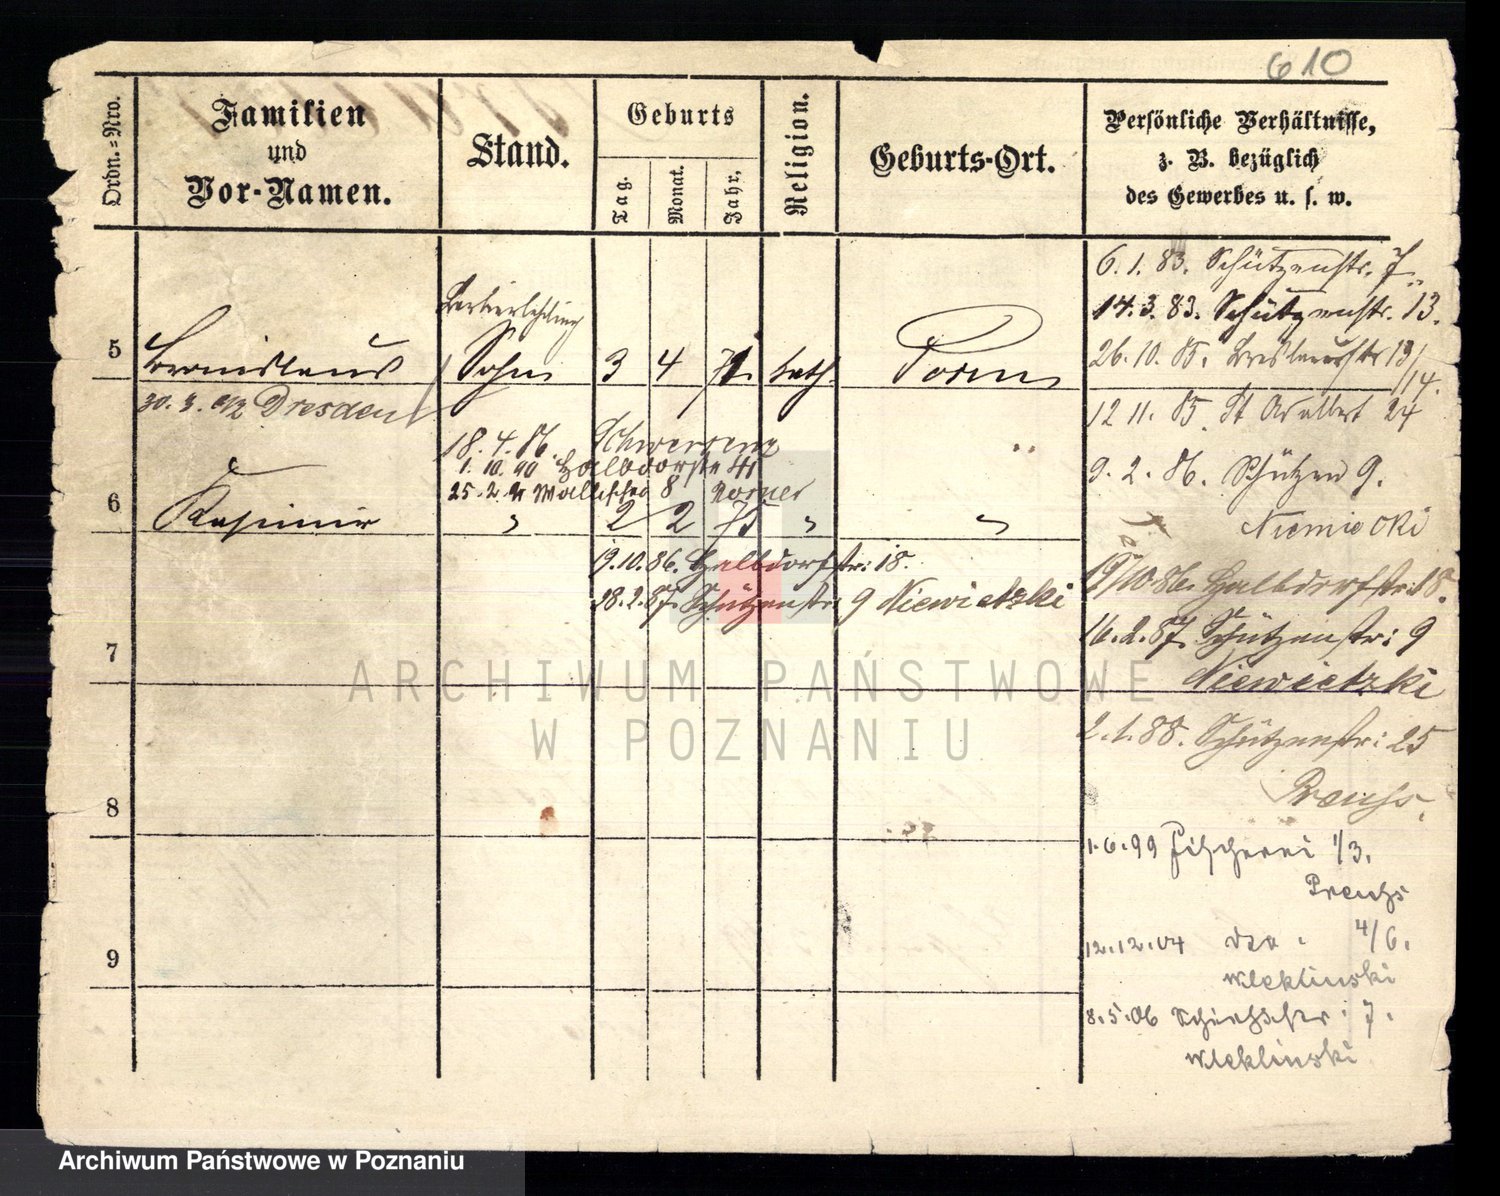 610
Ordn.=Nro.
Familien
und
Vor-Namen.
Stand.
Geburts
Tag.
Monat.
Jahr.
Religion.
Geburts-Ort.
Persönliche Verhältnisse,
z. B. bezüglich
des Gewerbes u. s. w.
5
Bronislaus
Sohn
3 4 71. kath. Posen
30. 3. 92 Dresden
18. 4. 86. Schwersenz
1. 10. 90 Halbdorfstr
25. 2. Wallischei 8
6
Kasimir
" 2 2 75 " "
19. 10. 86. Halbdorfstr: 18.
18. 2. 87. Schützenstr: 9 Niewietzki
7
8
9
6. 1. 83. Schützenstr. 7.
14. 3. 83. Schützenstr. 13.
26. 10. 85. Breslauerstr 13/
14.
12 11. 85. St Adalbert 24
9. 2. 86. Schützen 9.
19/10. 86. Halbdorfstr: 18.
16. 2. 87. Schützenstr: 9
Niewietzki
2. 1. 88. Schützenstr: 25
Preuss.
1. 6. 99 Fischerei 1/3.
Preuss
12. 12. 04 4/6.
Wleklinski
8. 5. 06 7.
Wleklinski
ARCHIWUM PAŃSTWOWE
W POZNANIU
Archiwum Państwowe w Poznaniu